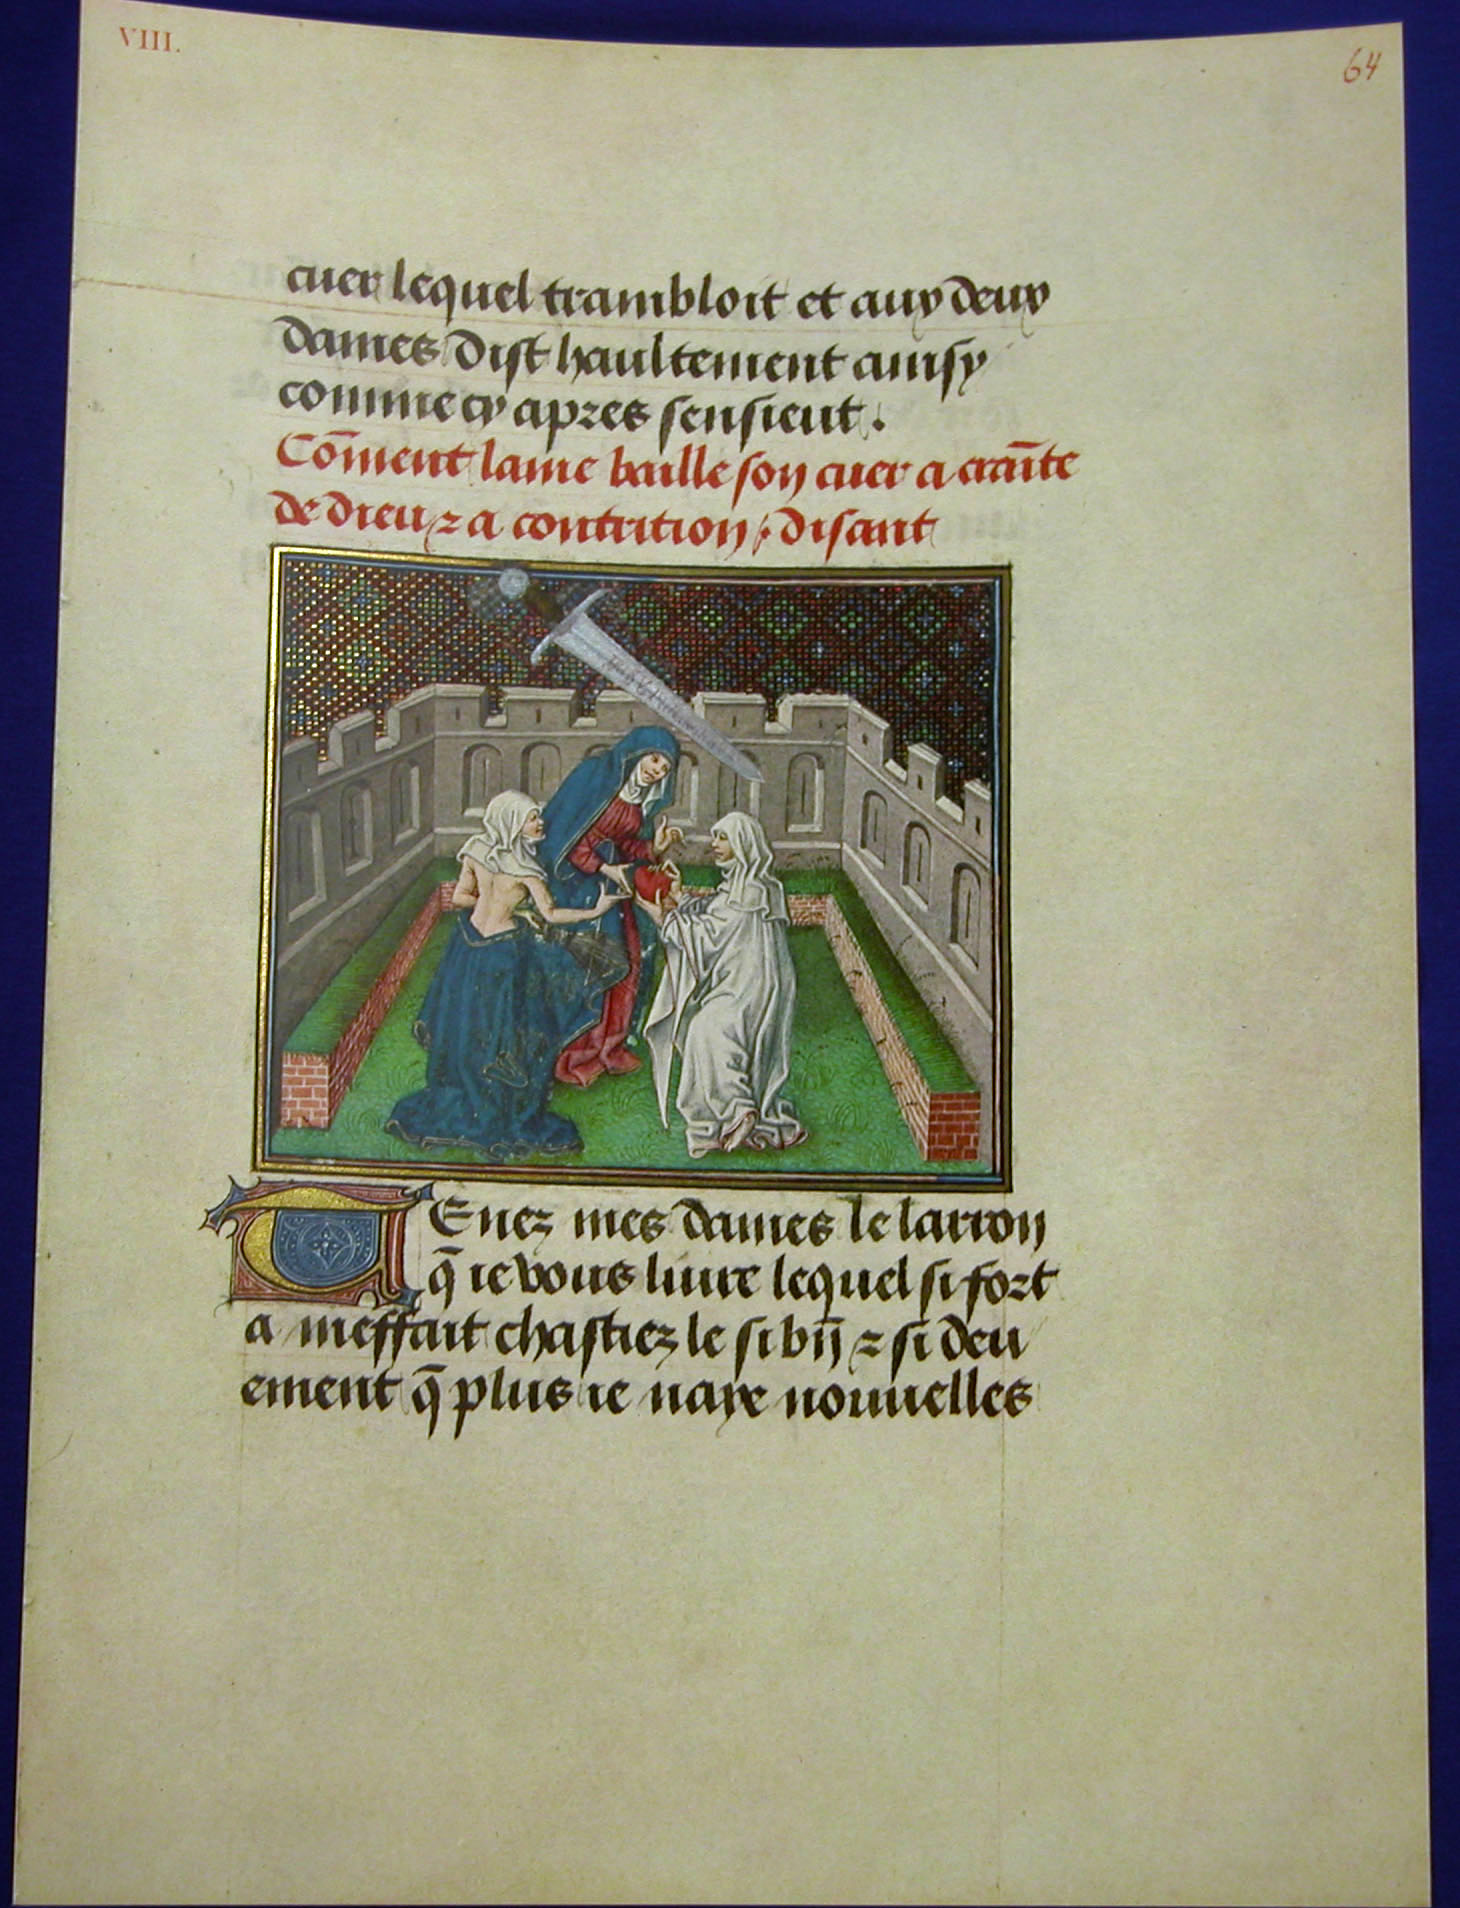 VIII.
64
cuer lequel trambloit et aux deux
dames dist haultement ainsy
comme cy apres sensieut.
Cõment lame baille son cuer a crai̅te
de dieu ⁊ a contrition / disant
Tenez mes dames le larron
q̄ ie vous liure lequel si fort
a meffait chastiez le si bn̄ ⁊ si deu
ement q̄ plus ie naye nouuelles